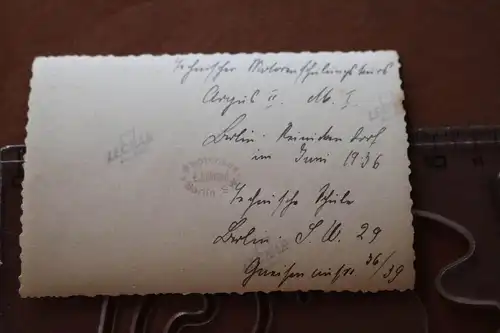 Technischer Motorenschulungskurs
Argus u. M. I
Berlin-Reinickendorf
im Juni 1936
Berlin
Technische Schule
Berlin. S.W. 29
Gneisenaustr. 36/39